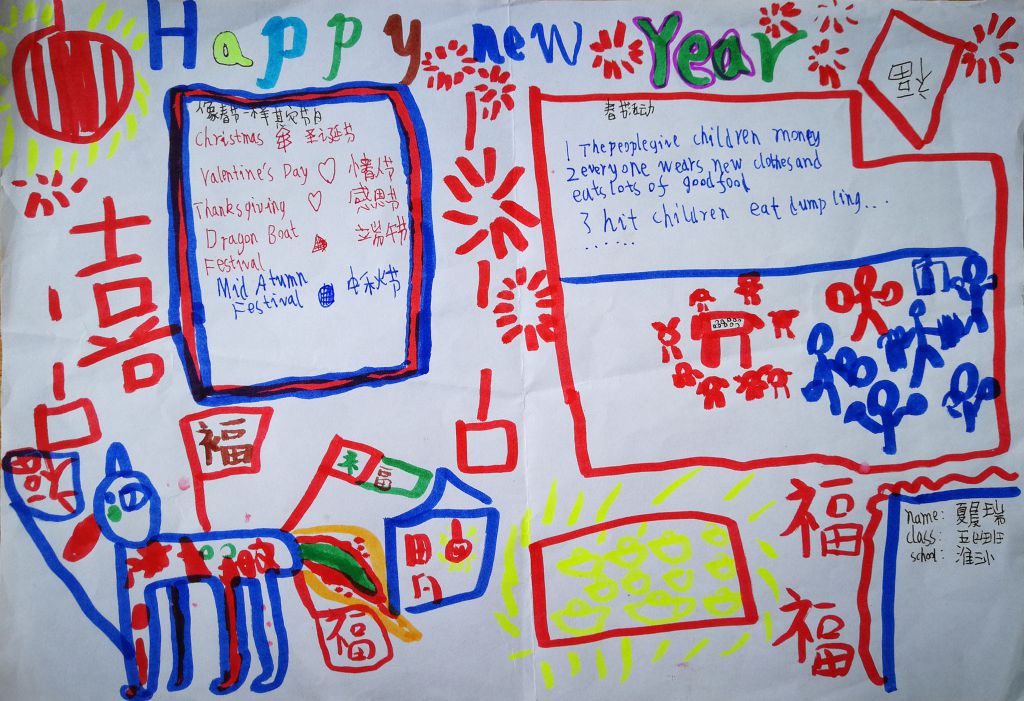 Happy new Year
像春节一样其它节日
Christmas 圣诞节
Valentine's Day 情人节
Thanksgiving 感恩节
Dragon Boat 端午节
Festival
Mid Atumn 中秋节
Festival
春节活动
1 The people give children money
2 everyone wears new clothes and
eats lots of good food
3 hit children eat dumpling...
......
喜
福
福
来福
福
福
福
name: 夏晨瑞
class: 五四班
school: 淮小